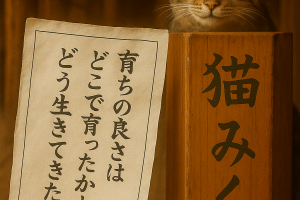 育ちの良さは
どこで育ったか
どう生きてきた
猫みく